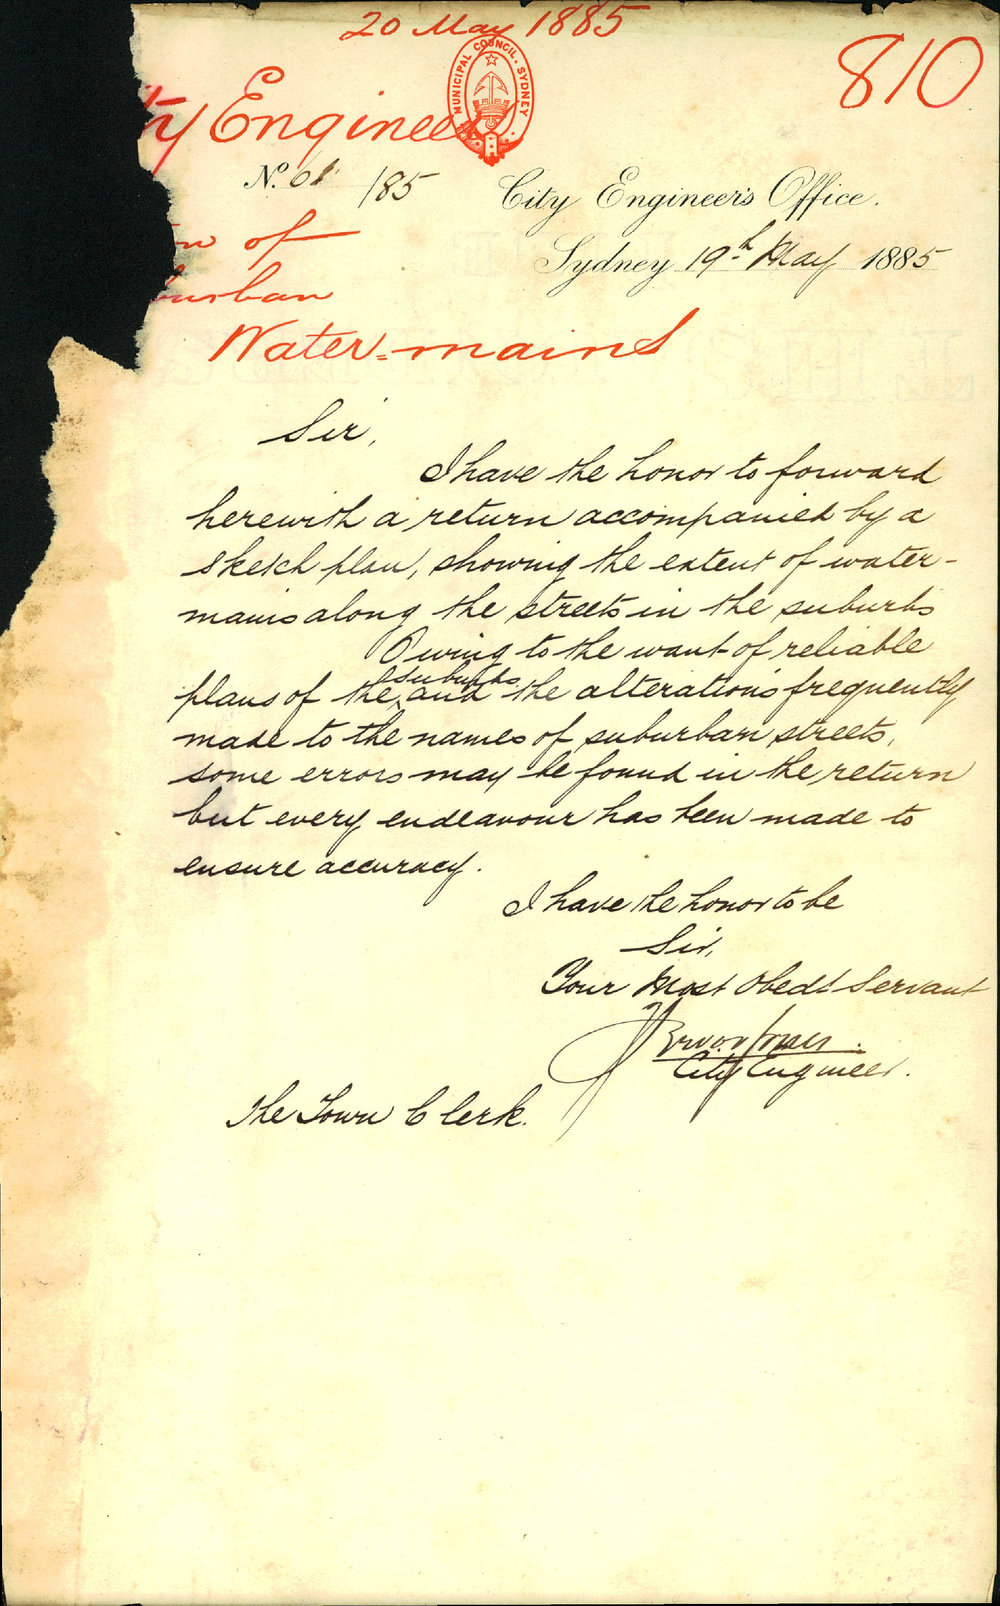 20 May 1885
810
MUNICIPAL COUNCIL. SYDNEY
ty Engineer
No. 61 /85
City Engineer's Office.
of
Sydney 19th May 1885
urban
Water=mains
Sir,
I have the honor to forward
herewith a return accompanied by a
sketch plan, showing the extent of water-
mains along the streets in the suburbs
Owing to the want of reliable
plans of the suburbs and the alterations frequently
made to the names of suburban streets,
some errors may be found in the return
but every endeavour has been made to
ensure accuracy.
I have the honor to be
Sir,
Your Most Obedt Servant
City Engineer.
The Town Clerk.